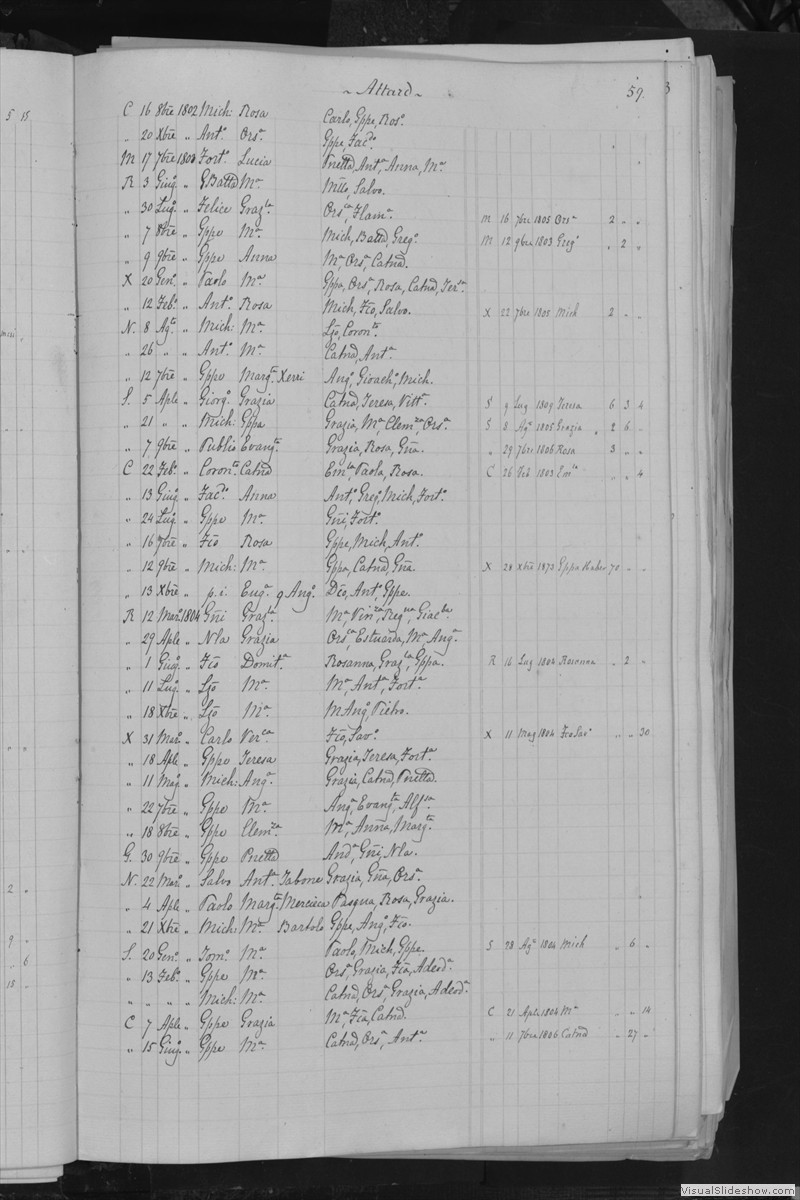 ~ Attard ~ 59 3
5 15
C 16 8bre 1802 Mich: Rosa Carlo, Gppe, Rosº
" 20 Xbre " Antº Orsª Gppe, Jacº
M 17 7bre 1803 Fortº Lucia Pnetta, Antª Anna, Mª
R 3 Giugº " GBatta Mª Mlle, Salvo.
" 30 Lugº " Felice Grazla Orsca, Flamª M 16 7bre 1805 Orsª 2 " "
" 7 8bre " Gppe Mª Mich, Batta, Gregº M 12 9bre 1803 Gregº " 2 "
" 9 9bre " Gppe Anna Mª, Orsª, Catnd.
X 20 Genº " Paolo Mª Gppa, Orsª, Rosa, Catnd, Terª
" 12 Febº " Antº Rosa Mich, Fco, Salvo. X 22 7bre 1805 Mich 2 " "
N. 8 Agº " Mich: Mª Lzo, Coronta
" 26 " " Antº Mª Catnd, Antª
" 12 7bre " Gppe Margª Xerri Angº, Gioachº, Mich.
S. 5 Aple " Giorgº Grazia Catnd, Teresa, Vittª S 9 Lug 1809 Teresa 6 3 4
" 21 " " Mich: Gppa Grazia, Mª, Clemza, Orsª S 8 Agº 1805 Grazia " 2 6 "
" 7 9bre " Publio Evangª Grazia, Rosa, Gna. " 29 7bre 1806 Rosa 3 " "
C 22 Febº " Coronto Catnd Emla, Paola, Rosa. C 26 Feb 1803 Emla " " 4
" 13 Giugº " Jacº Anna Antº, Gregº, Mich, Fortº
" 24 Lugº " Gppe Mª Gnì, Fortº
" 16 7bre " Fco Rosa Gppe, Mich, Antº
" 12 9bre " Mich: Mª Gppa, Catnd, Gna. X 28 Xbre 1873 Gppa 70 " "
" 13 Xbre " p. i. Eugª q Angº Dco, Antº, Gppe.
R 12 Marº 1804 Gnì Grazla Mª, Vinza, Regna, Giacba
" 29 Aple " Nla Grazia Orsla, Estuarda, Mª, Angª
" 1 Giugº " Fco Domitª Rosanna, Grazla, Gppa. R 16 Lug 1804 Rosanna " 2 "
" 11 Lugº " Lzo Mª Mª, Antª, Fortª
" 18 Xbre " Lzo Mª MAngª, Pietro.
X 31 Marº " Carlo Verca Fco, Savº X 11 Mag 1804 Fco Savº " " 30
" 18 Aple " Gppe Teresa Grazia, Teresa, Fortª
" 11 Magº " Mich: Angª Grazia, Catnd, Pnetta.
" 22 7bre " Gppe Mª Angª, Evangta, Alfsa
" 18 8bre " Gppe Clemza Mª, Anna, Margta
G. 30 9bre " Gppe Pnetta Andª, Gnì, Nla.
N. 22 Marº " Salvo Antª Tabone Grazia, Gna, Orsª 2 "
" 4 Aple " Paolo Margª Mercieca Pasqua, Rosa, Grazia.
" 21 Xbre " Mich: Mª Bartolo Gppe, Angº, Fco.
S. 20 Genº " Tomº Mª Paolo, Mich, Gppe. S 28 Agº 1804 Mich " 6 "
" 13 Febº " Gppe Mª Orsª, Grazia, Fca, Adeodª
" " " " Mich: Mª Catnd, Orsª, Grazia, Adeodª
C 7 Aple " Gppe Grazia Mª, Fca, Catnd. C 21 Aple 1804 Mª " " 14
" 15 Giugº " Gppe Mª Catnd, Orsª, Antª " 11 7bre 1806 Catnd " 27 "
VisualSlideshow.com